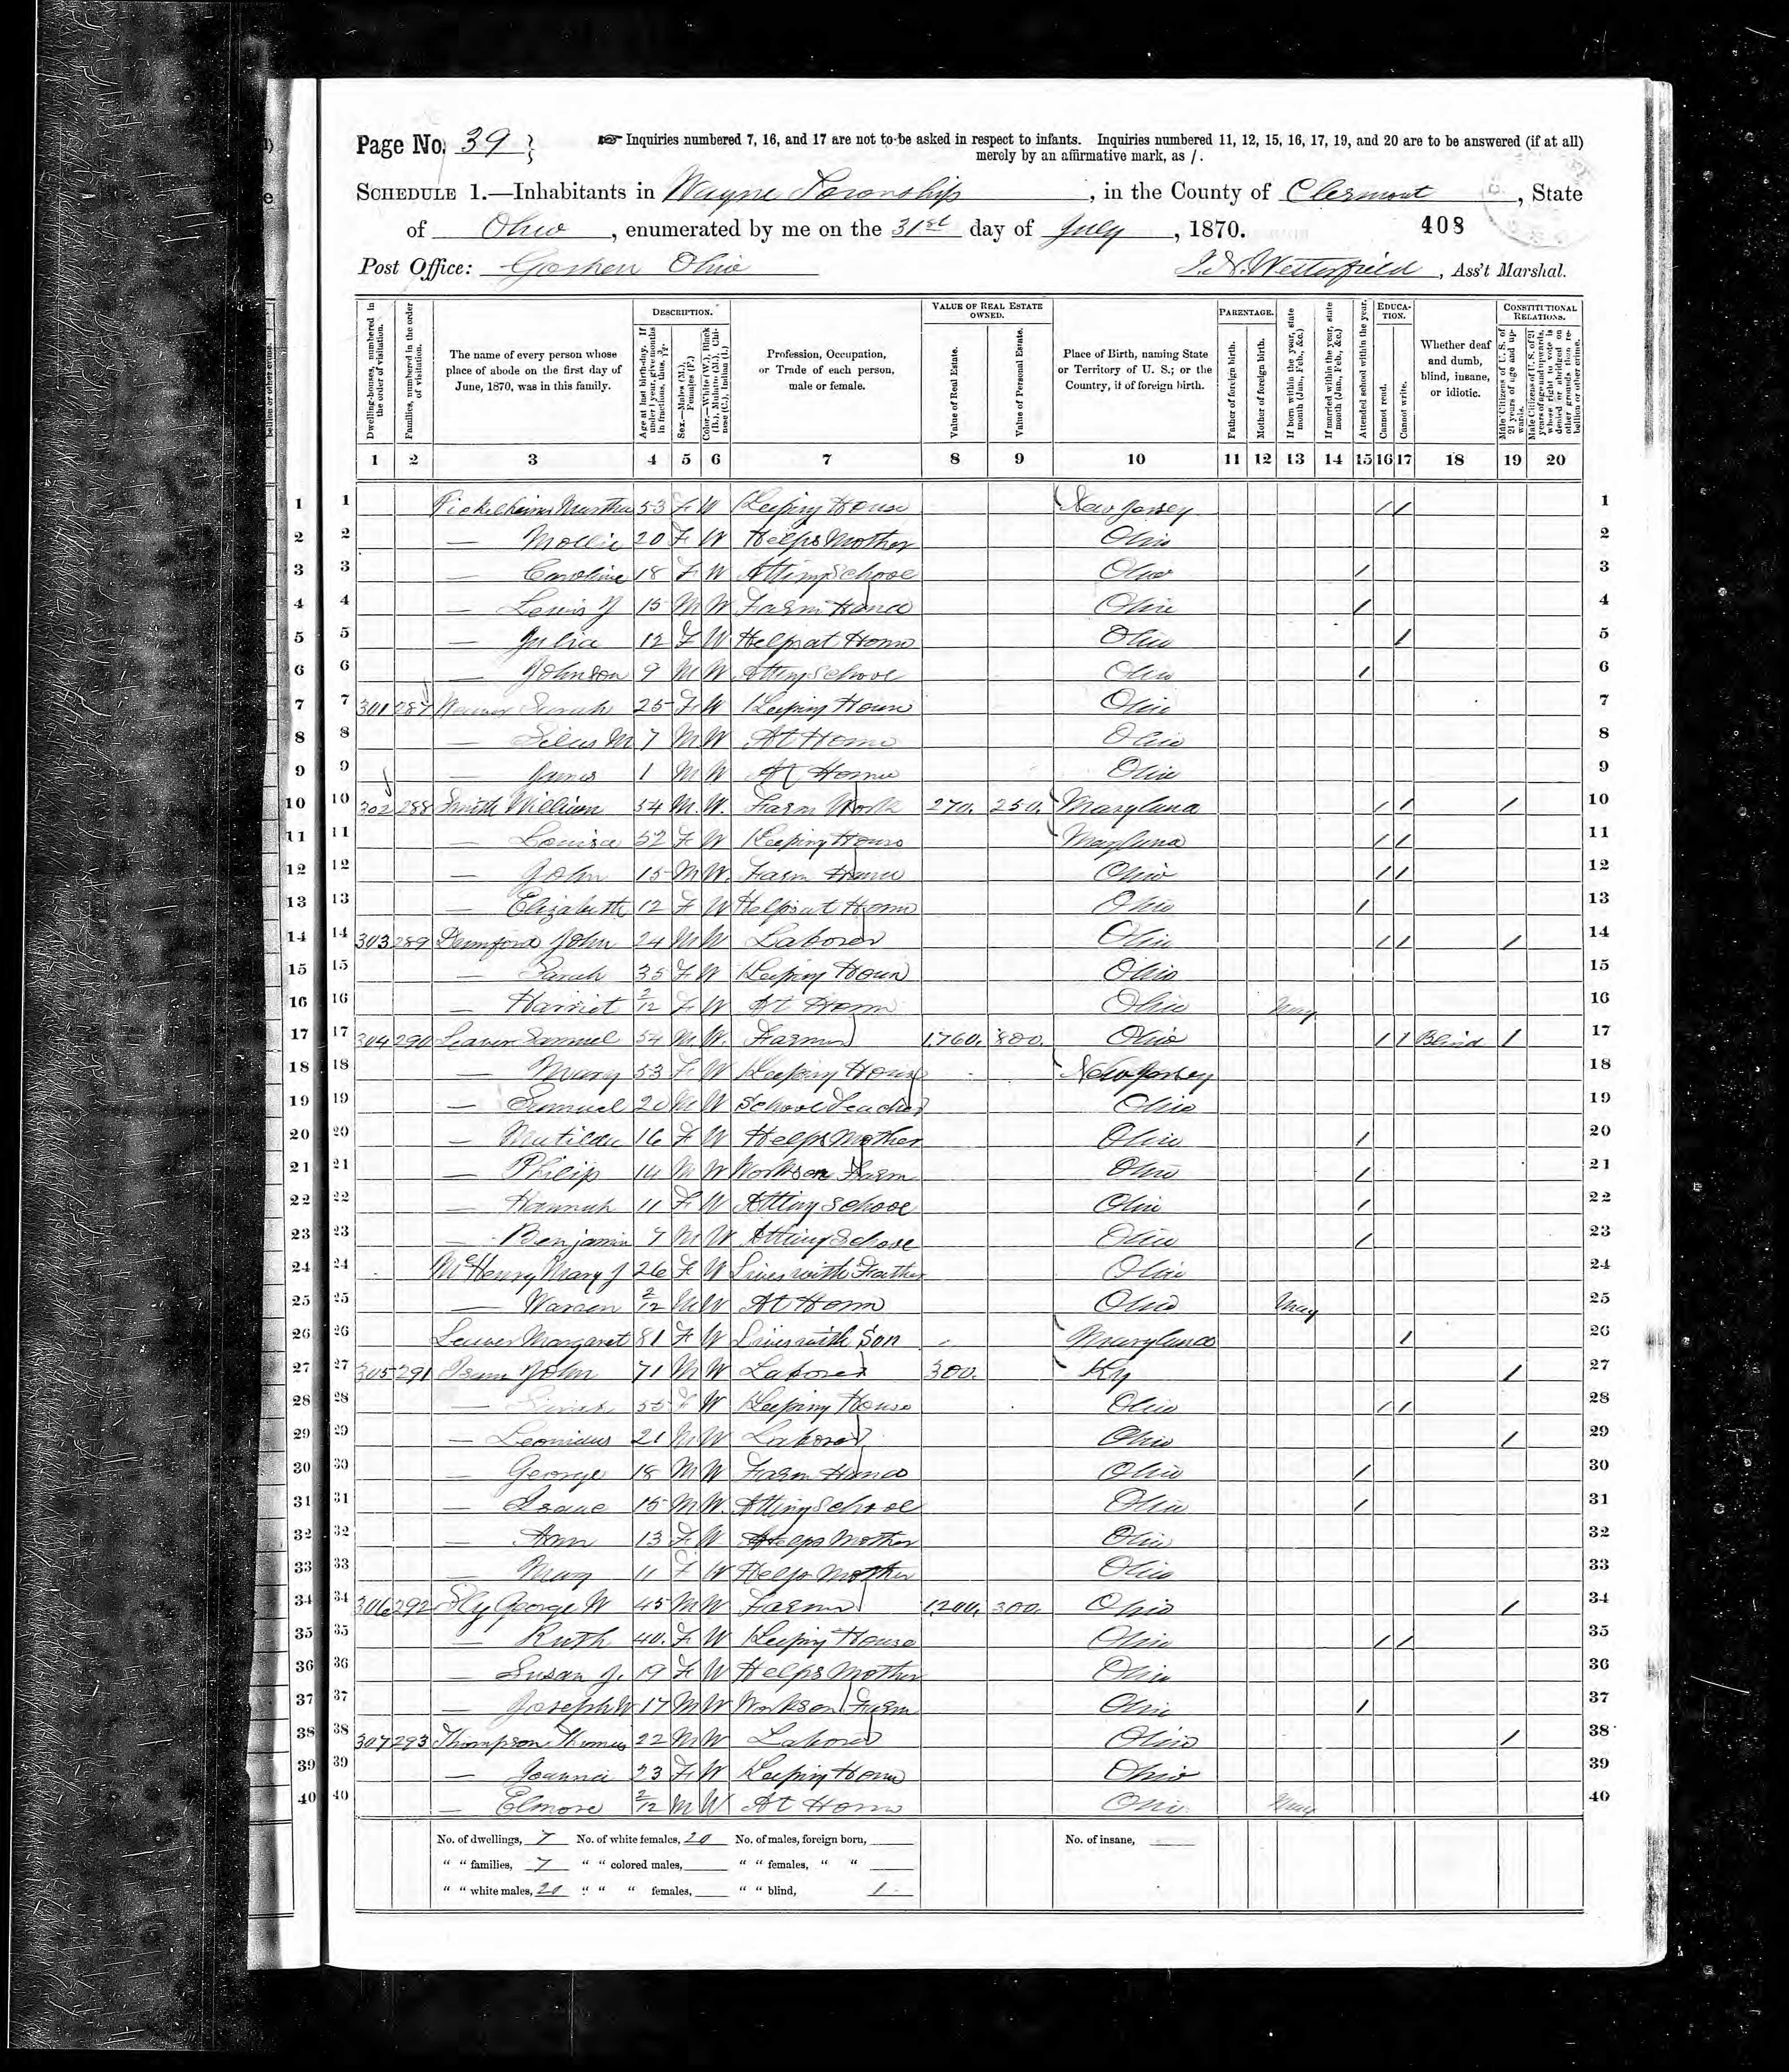 Page No. 39
☞ Inquiries numbered 7, 16, and 17 are not to be asked in respect to infants. Inquiries numbered 11, 12, 15, 16, 17, 19, and 20 are to be answered (if at all)
merely by an affirmative mark, as /.
SCHEDULE 1.—Inhabitants in Wayne Township, in the County of Clermont, State
of Ohio, enumerated by me on the 31st day of July, 1870. 408
Post Office: Goshen Ohio Westerfield, Ass't Marshal.
DESCRIPTION. VALUE OF REAL ESTATE OWNED. PARENTAGE. EDUCATION. CONSTITUTIONAL RELATIONS.
Dwelling-houses, numbered in the order of visitation.
Families, numbered in the order of visitation.
The name of every person whose place of abode on the first day of June, 1870, was in this family.
Age at last birth-day. If under 1 year, give months in fractions, thus, 3/12.
Sex.—Males (M.), Females (F.)
Color.—White (W.), Black (B.), Mulatto (M.), Chinese (C.), Indian (I.)
Profession, Occupation, or Trade of each person, male or female.
Value of Real Estate.
Value of Personal Estate.
Place of Birth, naming State or Territory of U. S.; or the Country, if of foreign birth.
Father of foreign birth.
Mother of foreign birth.
If born within the year, state month (Jan., Feb., &c.)
If married within the year, state month (Jan., Feb., &c.)
Attended school within the year.
Cannot read.
Cannot write.
Whether deaf and dumb, blind, insane, or idiotic.
Male Citizens of U. S. of 21 years of age and upwards.
Male Citizens of U. S. of 21 years of age and upwards, whose right to vote is denied or abridged on other grounds than rebellion or other crime.
1 2 3 4 5 6 7 8 9 10 11 12 13 14 15 16 17 18 19 20
1 Martha 53 F W Keeping House New Jersey / / 1
2 — Mollie 20 F W Helps Mother Ohio 2
3 — Caroline 18 F W Atting School Ohio / 3
4 — Lewis J 15 M W Farm Hand Ohio / 4
5 — Julia 12 F W Helps at Home Ohio / 5
6 — Johnson 9 M W Atting School Ohio / 6
7 301 287 Sarah 25 F W Keeping House Ohio 7
8 — Silas M 7 M W At Home Ohio 8
9 — James 1 M W At Home Ohio 9
10 302 288 Smith William 54 M W Farm Work 270. 250. Maryland / / / 10
11 — Louisa 52 F W Keeping House Maryland / / 11
12 — John 15 M W Farm Hand Ohio / / 12
13 — Elizabeth 12 F W Helps at Home Ohio / 13
14 303 289 John 24 M W Laborer Ohio / / / 14
15 — Sarah 35 F W Keeping House Ohio 15
16 — Harriet 2/12 F W At Home Ohio May 16
17 304 290 Leaver Samuel 54 M W Farmer 1,760. 800. Ohio / / Blind / 17
18 — Mary 53 F W Keeping House New Jersey 18
19 — Samuel 20 M W School Teacher Ohio 19
20 — Matilda 16 F W Helps Mother Ohio / 20
21 — Philip 14 M W Works on Farm Ohio / 21
22 — Hannah 11 F W Atting School Ohio / 22
23 — Benjamin 7 M W Atting School Ohio / 23
24 McHenry Mary J 26 F W Lives with Father Ohio 24
25 — Warren 2/12 M W At Home Ohio May 25
26 Leaver Margaret 81 F W Lives with Son Maryland / 26
27 305 291 John 71 M W Laborer 300. Ky / 27
28 — 55 F W Keeping House Ohio / / 28
29 — Leonidus 21 M W Laborer Ohio / 29
30 — George 18 M W Farm Hand Ohio / 30
31 — Isaac 15 M W Atting School Ohio / 31
32 — Ann 13 F W Helps Mother Ohio 32
33 — Mary 11 F W Helps Mother Ohio 33
34 306 292 Sly George W 45 M W Farmer 1,200. 300. Ohio / 34
35 — Ruth 40. F W Keeping House Ohio / / 35
36 — Susan J. 19 F W Helps Mother Ohio 36
37 — Joseph W 17 M W Works on Farm Ohio / 37
38 307 293 Thompson Thomas 22 M W Laborer Ohio / 38
39 — Joanna 23 F W Keeping House Ohio 39
40 — Elmore 2/12 M W At Home Ohio May 40
No. of dwellings, 7 No. of white females, 20 No. of males, foreign born, No. of insane,
" " families, 7 " " colored males, " " females, " "
" " white males, 20 " " " females, " " blind, 1